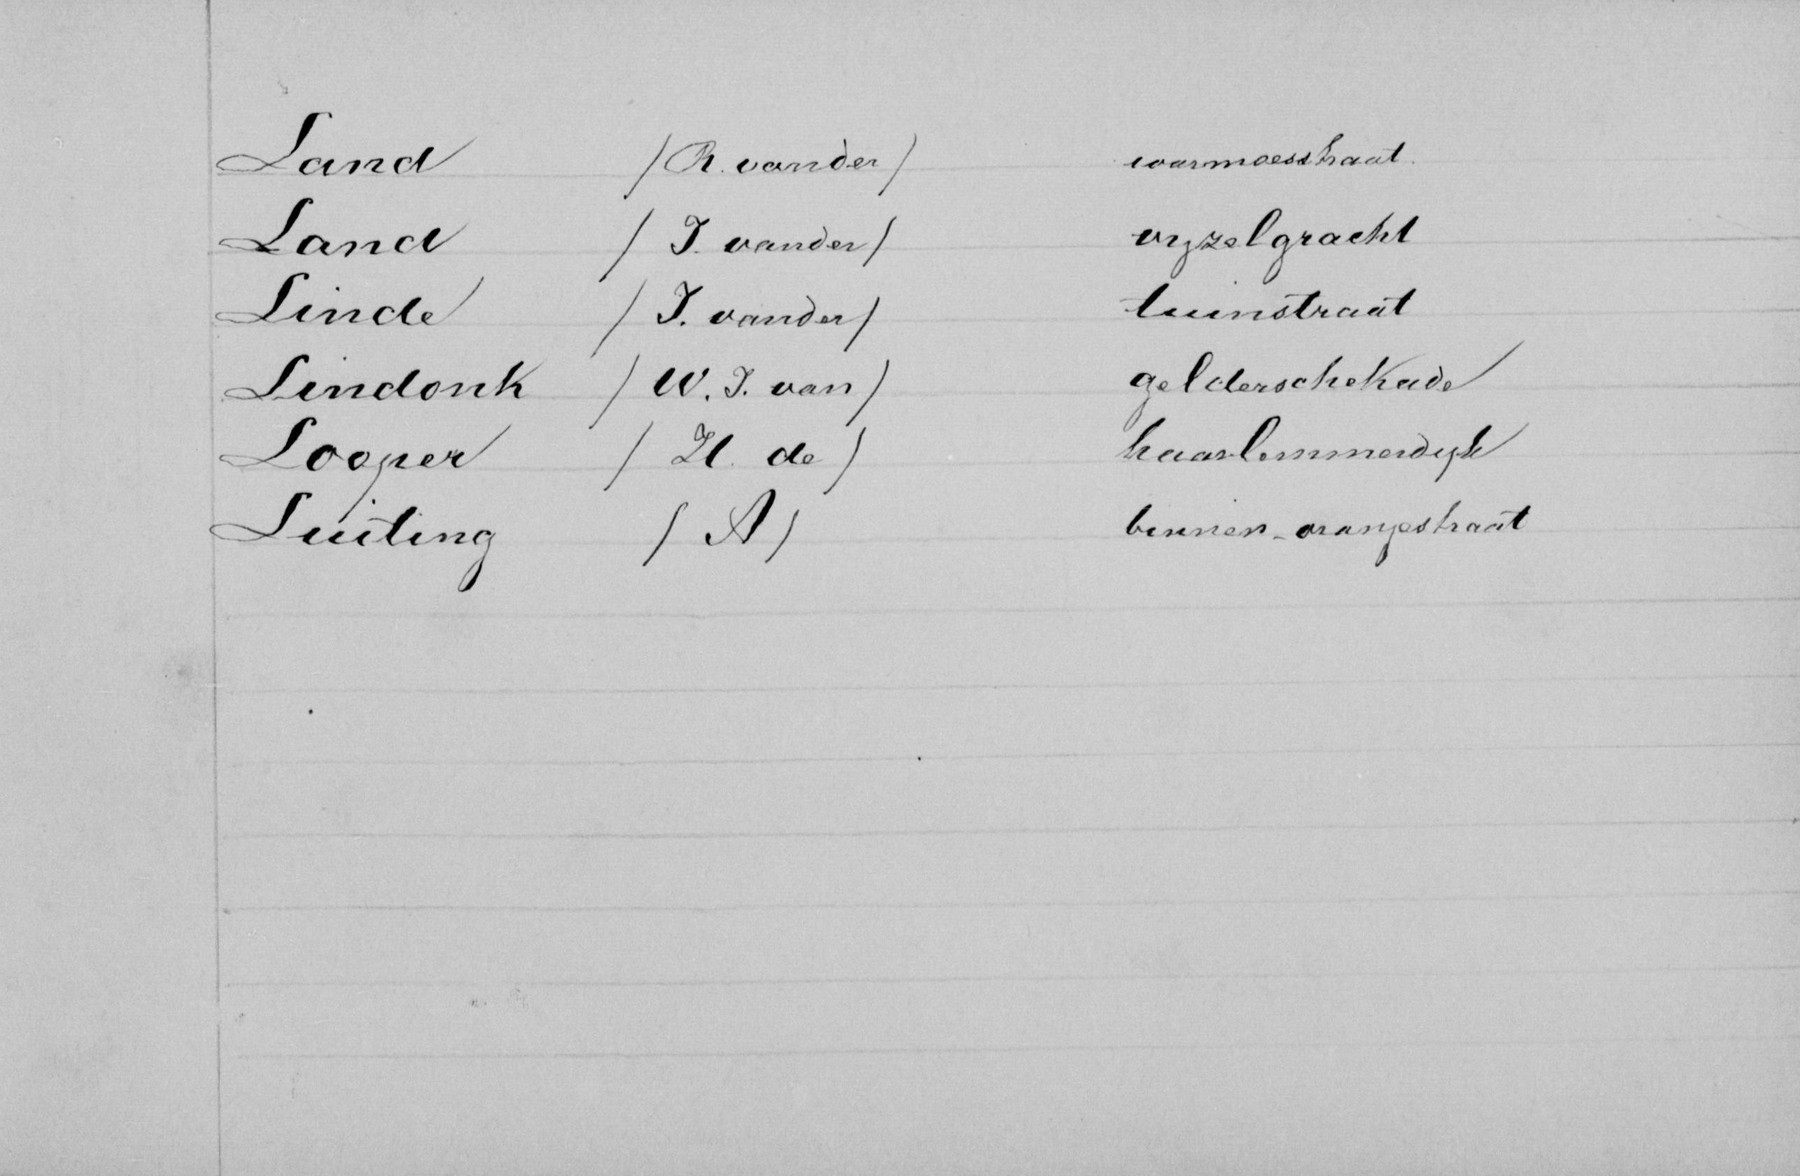 Land / R. vander / warmoesstraat
Land / J. vander / vyzelgracht
Linde / J. vander / tuinstraat
Lindonk / W. J. van / gelderschekade
Looper / H. de / haarlemmerdyk
Luiting / A / binnen-oranjestraat